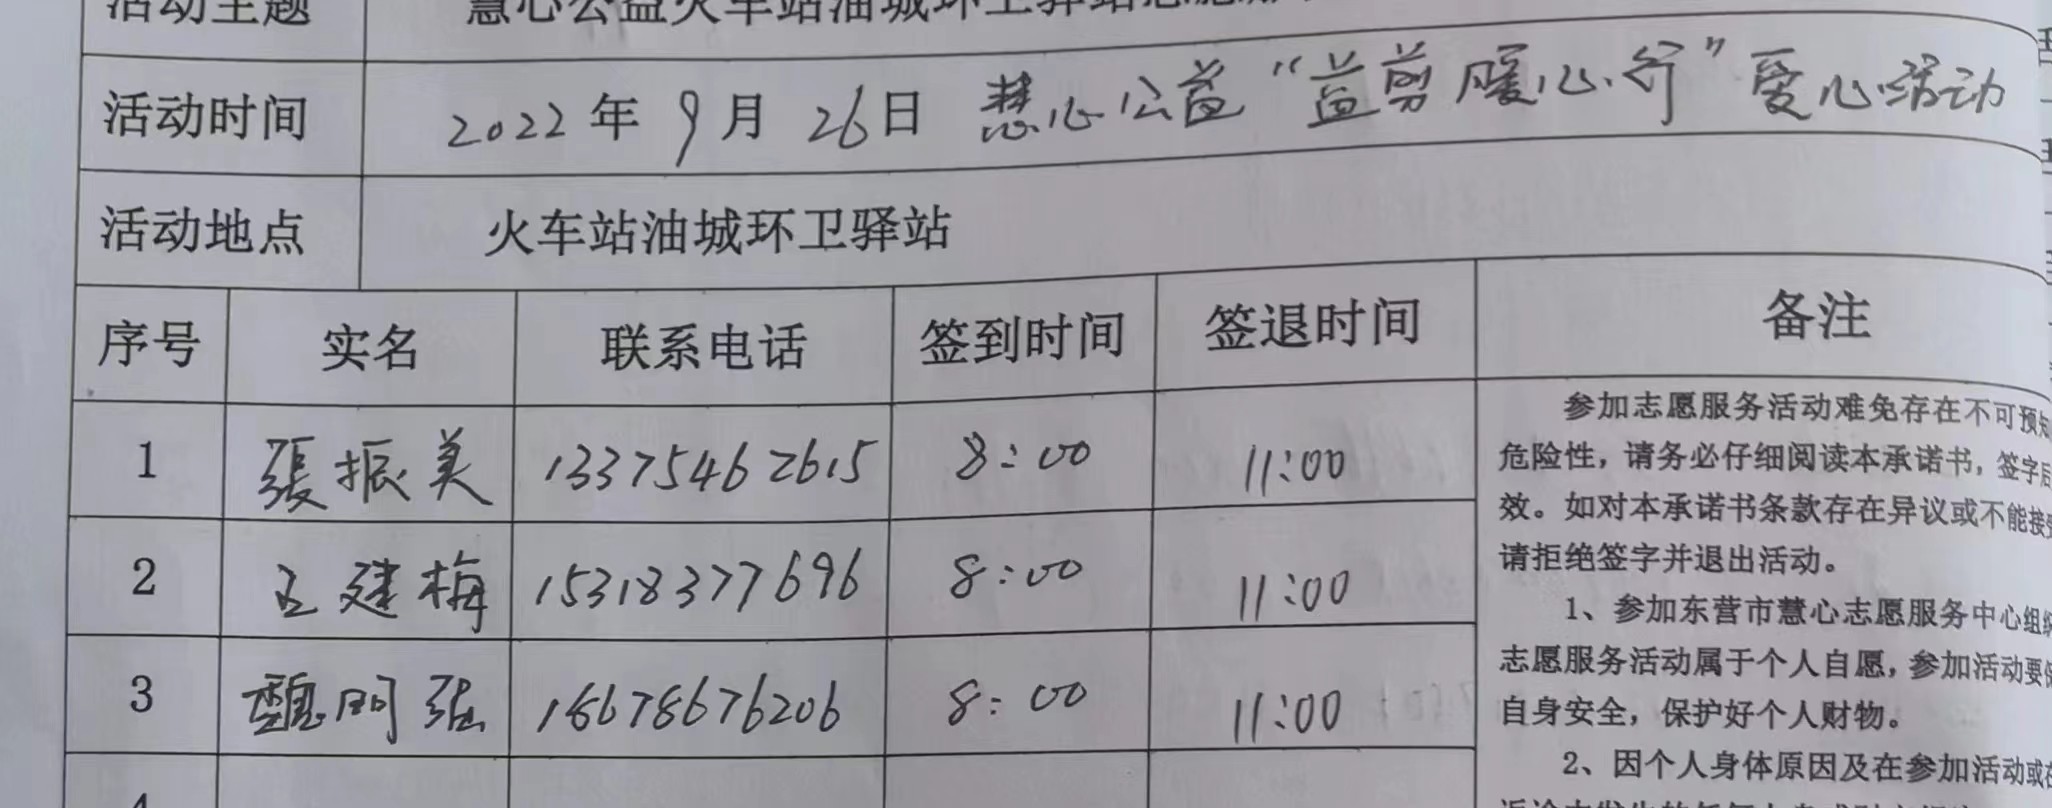 活动主题 慧心公益火车站油城环卫驿站志愿服
活动时间 2022年9月26日 慧心公益“益剪暖心行”爱心活动
活动地点 火车站油城环卫驿站
序号 实名 联系电话 签到时间 签退时间 备注
1 張振美 13375462615 8:00 11:00
2 王建梅 15318377696 8:00 11:00
3 魏 强 18678676206 8:00 11:00
4
参加志愿服务活动难免存在不可预知
危险性，请务必仔细阅读本承诺书，签字后
效。如对本承诺书条款存在异议或不能接受
请拒绝签字并退出活动。
1、参加东营市慧心志愿服务中心组织
志愿服务活动属于个人自愿，参加活动要
自身安全，保护好个人财物。
2、因个人身体原因及在参加活动或在